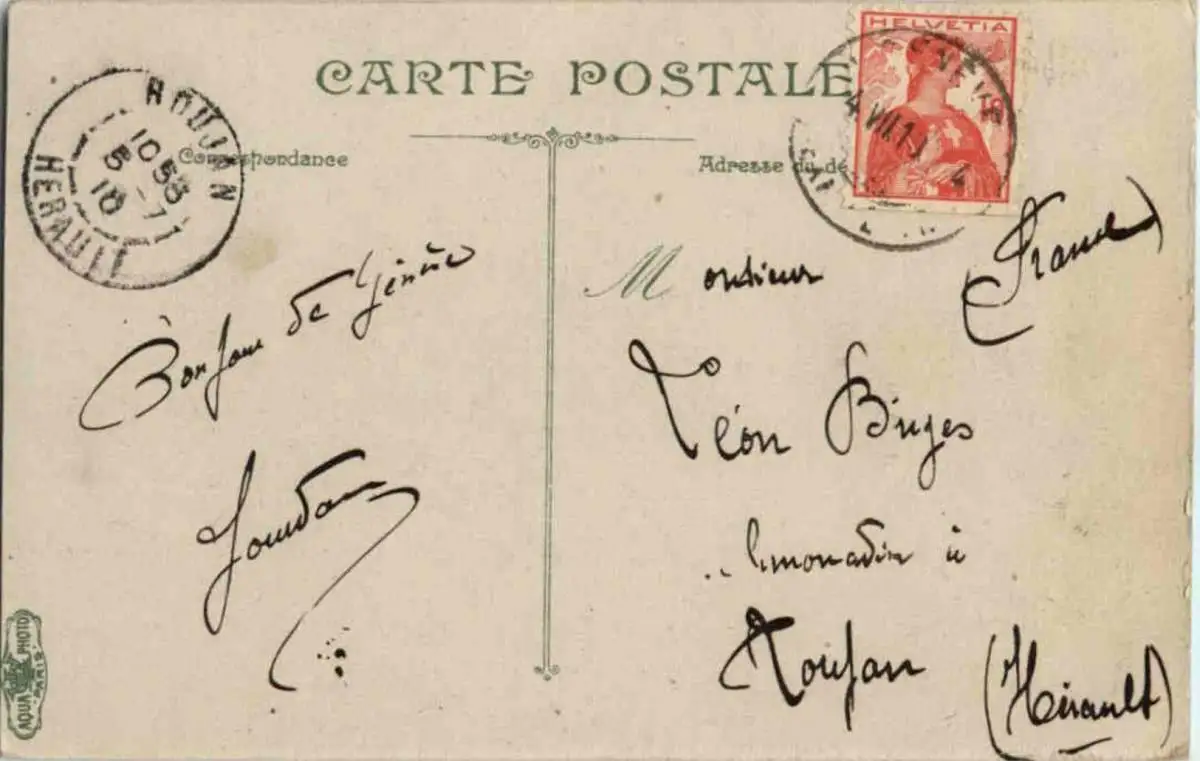 CARTE POSTALE
HELVETIA
GENÈVE
4.VII.10
ROUJAN
10 55
5 - 7
10
HERAULT
Correspondance
Adresse du de
(France)
Monsieur
Bonjour de Genève
Léon Buges
Jourdan
limonadier à
Roujan
(Hérault)
AQUA PHOTO
PARIS